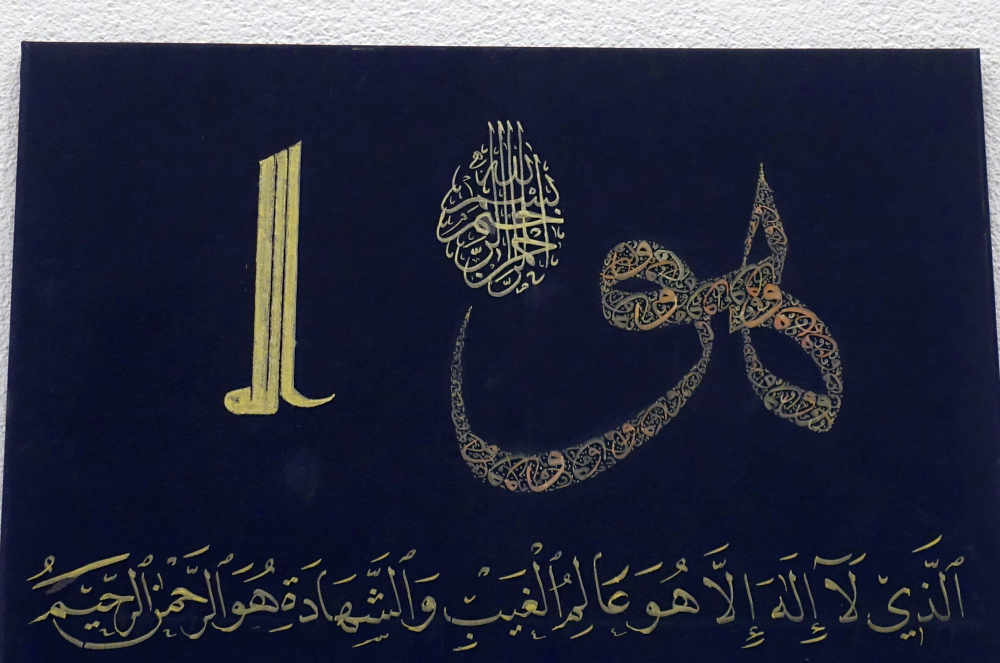 هو الله
بسم الله الرحمن الرحيم
ٱلَّذِي لَآ إِلَٰهَ إِلَّا هُوَ عَالِمُ ٱلْغَيْبِ وَٱلشَّهَادَةِ هُوَ ٱلرَّحْمَٰنُ ٱلرَّحِيمُ